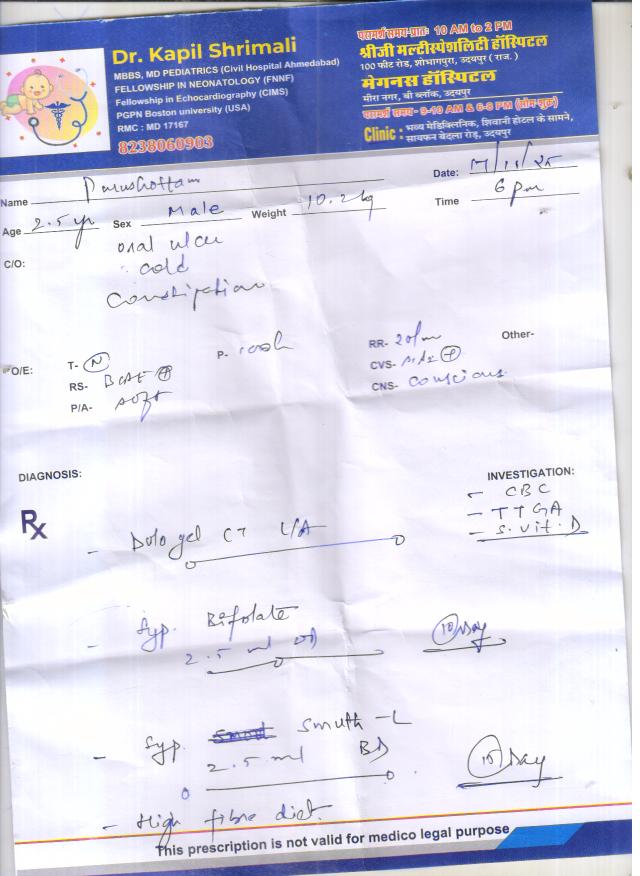 Dr. Kapil Shrimali
MBBS, MD PEDIATRICS (Civil Hospital Ahmedabad)
FELLOWSHIP IN NEONATOLOGY (FNNF)
Fellowship in Echocardiography (CIMS)
PGPN Boston university (USA)
RMC : MD 17167
8238060903
परामर्श समय-प्रातः 10 AM to 2 PM
श्रीजी मल्टीस्पेशलिटी हॉस्पिटल
100 फीट रोड, शोभागपुरा, उदयपुर ( राज. )
मेगनस हॉस्पिटल
मीरा नगर, बी ब्लॉक, उदयपुर
परामर्श समय - 9-10 AM & 6-8 PM
Clinic : भव्य मेडिक्लिनिक, शिवानी होटल के सामने,
सायफन बेदला रोड़, उदयपुर
Name Purushottam Date: 17/11/25
Age 2.5 yr Sex Male Weight 10.2 kg Time 6 pm
C/O: oral ulcer
cold
Constipation
O/E: T- N P- RR- 20/m Other-
RS- BLAE + CVS- +
P/A- soft CNS- conscious
DIAGNOSIS: INVESTIGATION:
Rx - CBC
- TTGA
- S. Vit. D
- Dologel CT L/A
- Syp. Bifolate
2.5 ml od 10 Day
- Syp. Smuth - L
2.5 ml BD Day
- High fibre diet.
This prescription is not valid for medico legal purpose